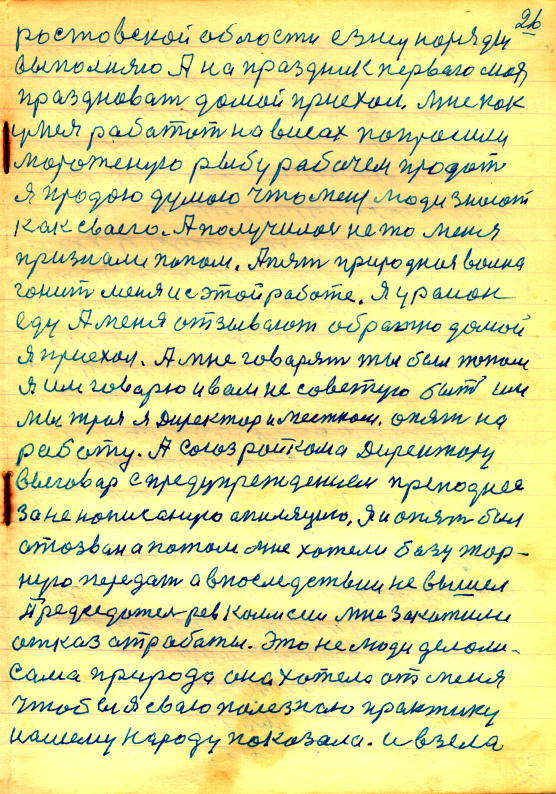 26
ростовской области езжу наряды
выполняю А на праздник первого мая
празноват домой приехал. Мне как
умея работат на висах попросили
мороженую рыбу рабочем продат
я продою думаю что меня люди знают
как сваего. А получилоя не то меня
признали попом. Апят природная воина
гонит меня и с этой работе. Я у раион
еду А меня отзывают обратно домой
Я приехал. А мне говарят ты был попом
Я им говарю и вам не советую быт им
Мы троя Я Директор и местком. опят на
работу. А союз ройкома Директору
выговар с предупреждением преподнес
за не написаную апиляцию, Я и опят был
отозван а потом мне хотели базу тор-
ную передат а впоследствии не вышел
Председател рев комисии мне закатили
отказ от работы. Это не люди делоли-
сама природа она хотела от меня
чтобы я сваю полезною практику
нашему народу показала. и взела